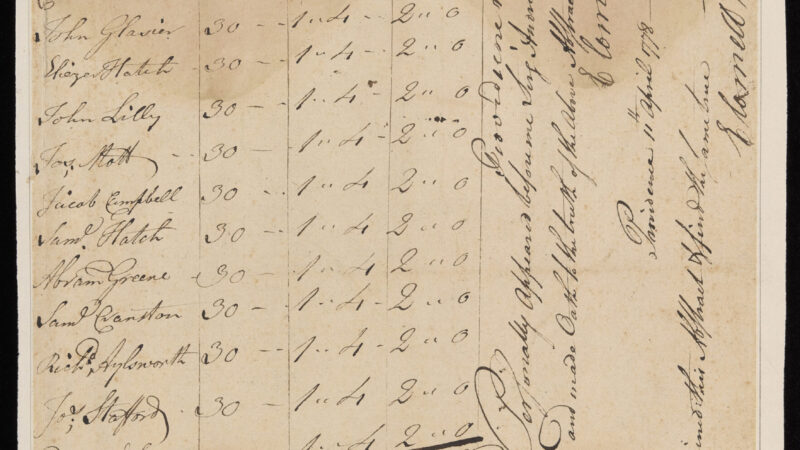 John Glasier 30 – 1 „ 4 – 2 „ 0
Eliezer Hatch 30 – 1 „ 4 – 2 „ 0
John Lilly 30 – 1 „ 4 – 2 „ 0
Jos. Mott 30 – 1 „ 4 – 2 „ 0
Jacob Campbell 30 – 1 „ 4 2 „ 0
Saml. Hatch 30 – 1 „ 4 – 2 „ 0
Abram Greene 30 – 1 „ 4 – 2 „ 0
Saml. Cranston 30 – 1 „ 4 – 2 „ 0
Richd. Aylsworth 30 – 1 „ 4 2 „ 0
Jos. Stafford 30 – 1 „ 4 2 „ 0
1 „ 4 2 „ 0
Providence
Personally Appeared before me
and made Oath to the truth of the above Abstract
Providence 11th April 1778
this Abstract & find the same true